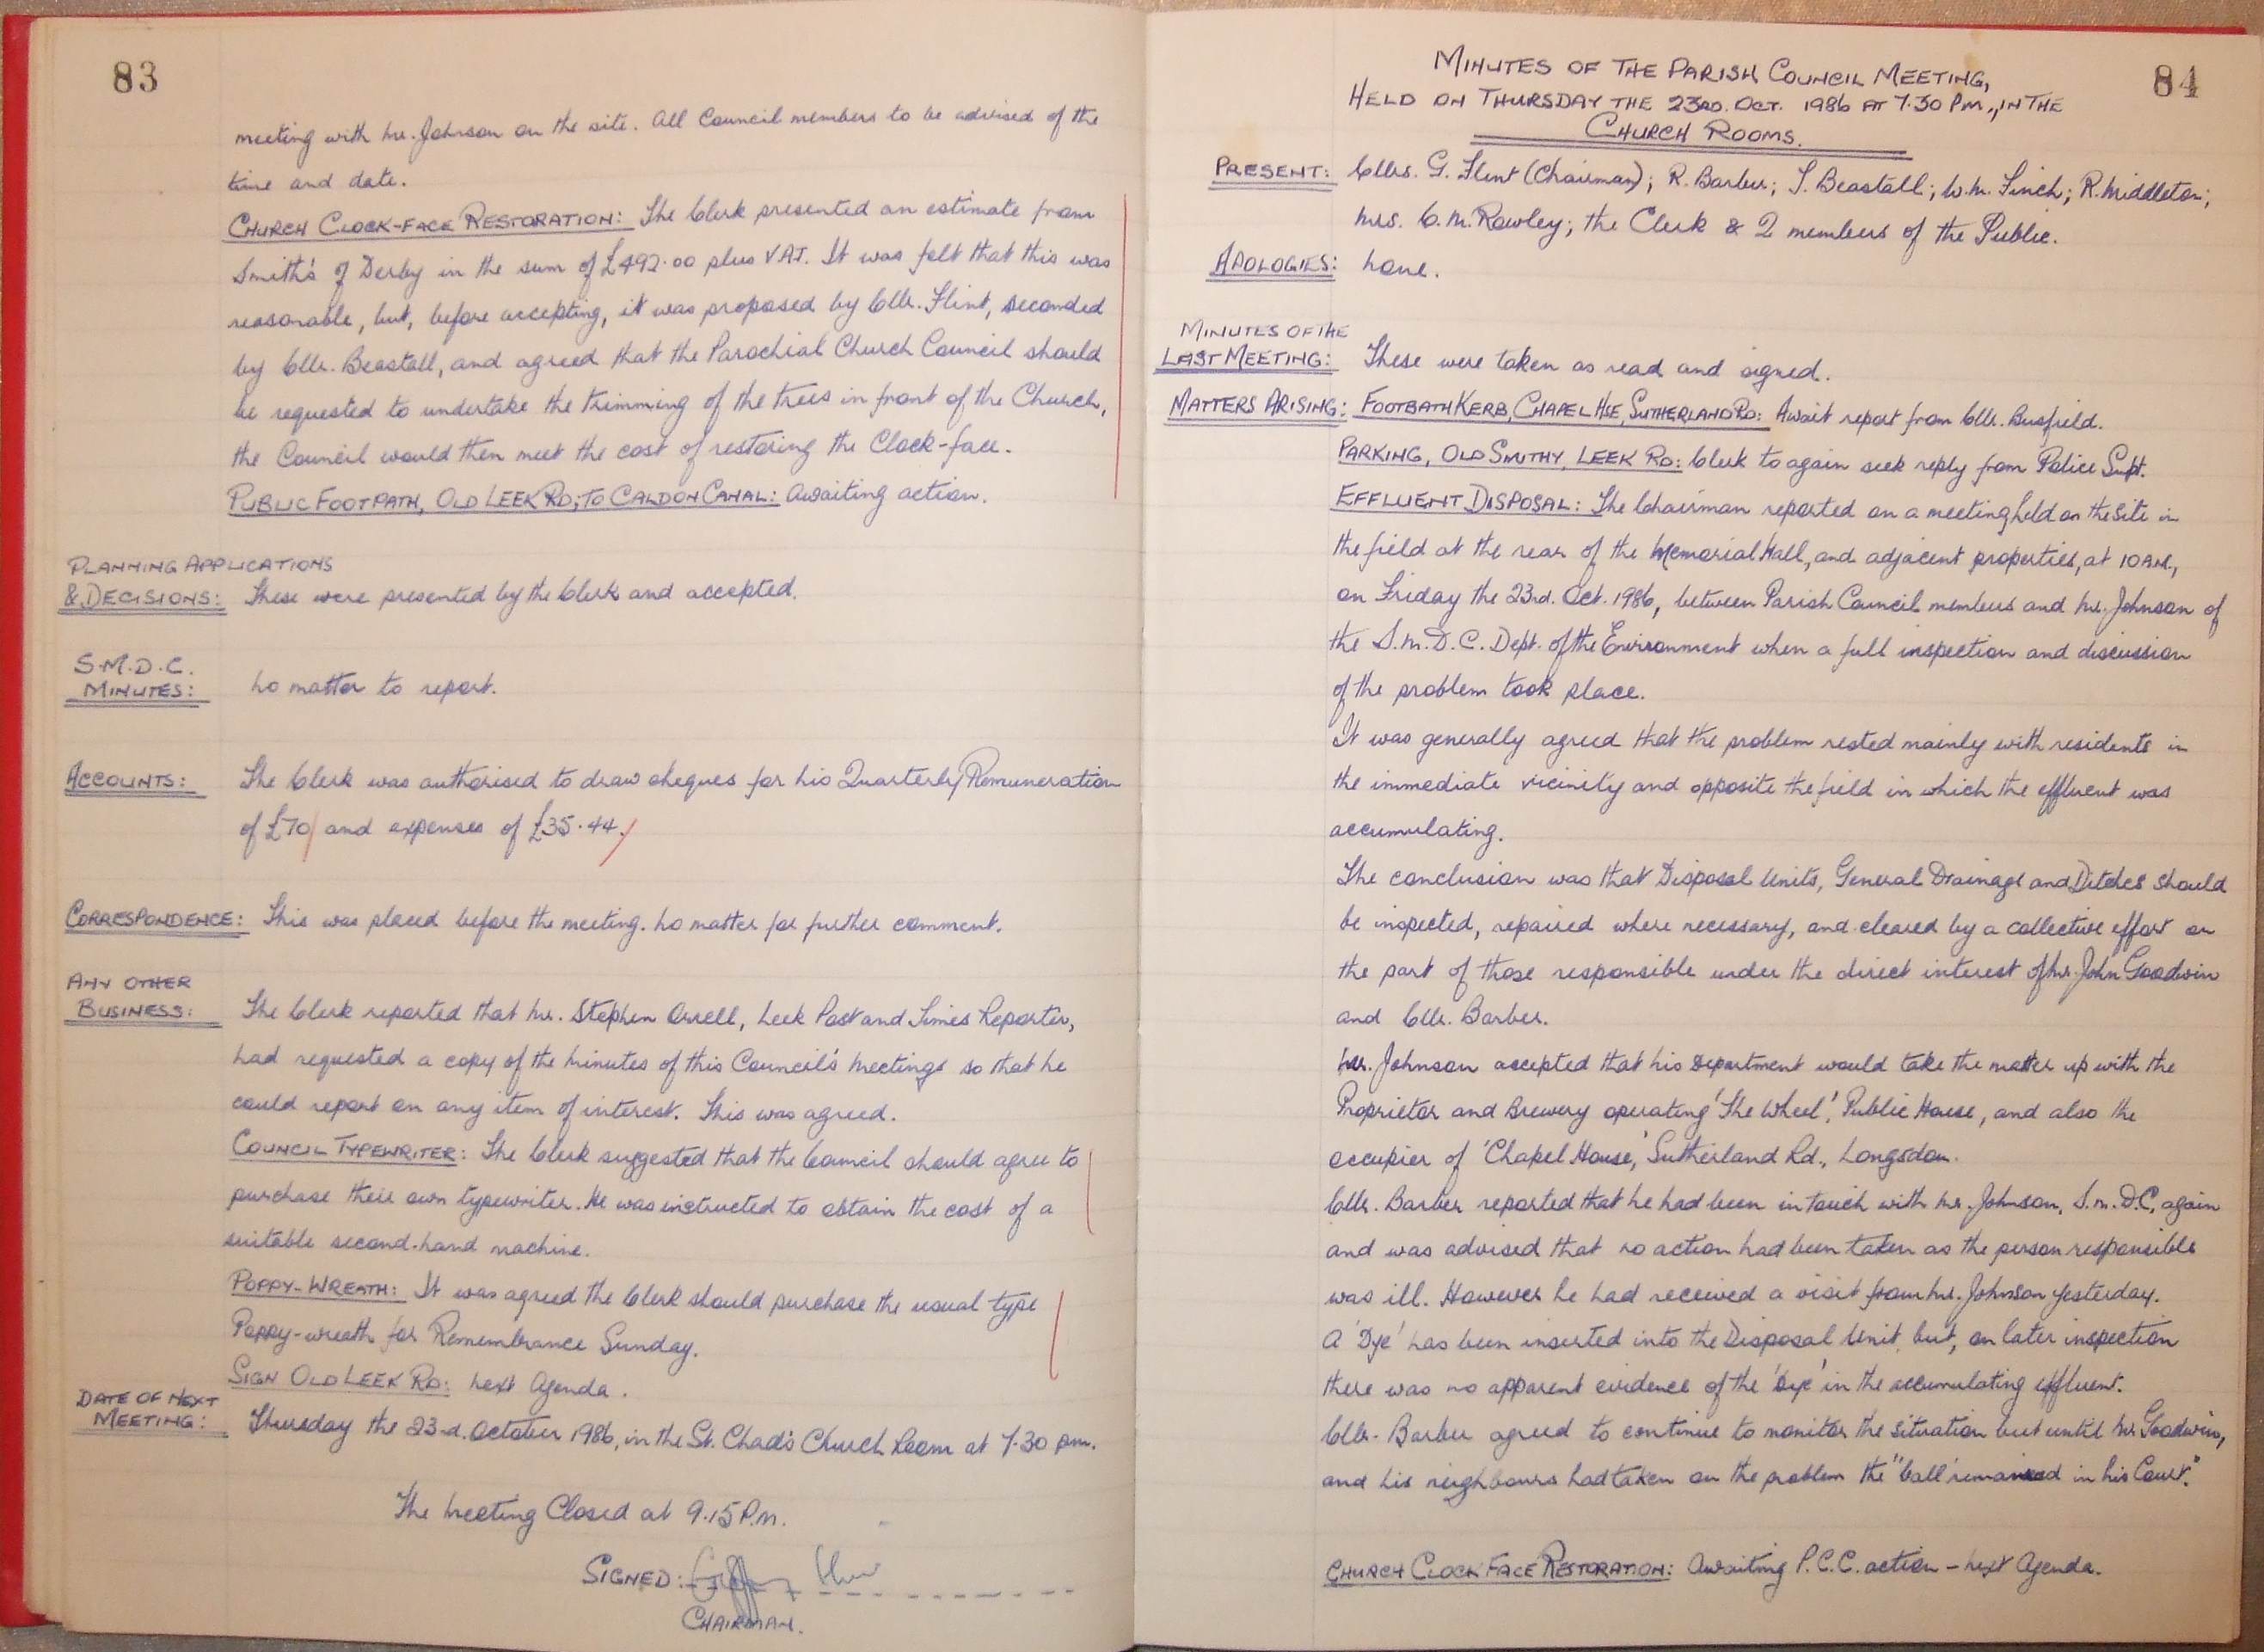 83
meeting with Mr. Johnson on the site. All Council members to be advised of the
time and date.
CHURCH CLOCK-FACE RESTORATION: The Clerk presented an estimate from
Smith's of Derby in the sum of £492.00 plus VAT. It was felt that this was
reasonable, but, before accepting, it was proposed by Cllr. Flint, seconded
by Cllr. Beastall, and agreed that the Parochial Church Council should
be requested to undertake the trimming of the trees in front of the Church,
the Council would then meet the cost of restoring the Clock-face.
PUBLIC FOOTPATH, OLD LEEK RD; TO CALDON CANAL: Awaiting action.
PLANNING APPLICATIONS
& DECISIONS: These were presented by the Clerk and accepted.
S.M.D.C.
MINUTES: No matter to report.
ACCOUNTS: The Clerk was authorised to draw cheques for his Quarterly Remuneration
of £70/ and expenses of £35.44.
CORRESPONDENCE: This was placed before the meeting. No matter for further comment.
ANY OTHER
BUSINESS: The Clerk reported that Mr. Stephen Orrell, Leek Post and Times Reporter,
had requested a copy of the Minutes of this Council's Meetings so that he
could report on any item of interest. This was agreed.
COUNCIL TYPEWRITER: The Clerk suggested that the Council should agree to
purchase their own typewriter. He was instructed to obtain the cost of a
suitable second-hand machine.
POPPY-WREATH: It was agreed the Clerk should purchase the usual type
Poppy-wreath for Remembrance Sunday.
SIGN OLD LEEK RD: Next Agenda.
DATE OF NEXT
MEETING: Thursday the 23rd. October 1986, in the St. Chad's Church Room at 7.30 pm.
The Meeting Closed at 9.15 P.M.
SIGNED:
CHAIRMAN.
84
MINUTES OF THE PARISH COUNCIL MEETING,
HELD ON THURSDAY THE 23RD. OCT. 1986 AT 7.30 PM., IN THE
CHURCH ROOMS.
PRESENT: Cllrs. G. Flint (Chairman); R. Barber; T. Beastall; W.M. Finch; R. Middleton;
Mrs. C.M. Rowley; the Clerk & 2 members of the Public.
APOLOGIES: None.
MINUTES OF THE
LAST MEETING: These were taken as read and signed.
MATTERS ARISING: FOOTBATH KERB, CHAPEL HSE, SUTHERLAND RD: Await report from Cllr. Busfield.
PARKING, OLD SMITHY, LEEK RD: Clerk to again seek reply from Police Supt.
EFFLUENT DISPOSAL: The Chairman reported on a meeting held on the site in
the field at the rear of the Memorial Hall, and adjacent properties, at 10 A.M.,
on Friday the 23rd. Oct. 1986, between Parish Council members and Mr. Johnson of
the S.M.D.C. Dept. of the Environment when a full inspection and discussion
of the problem took place.
It was generally agreed that the problem rested mainly with residents in
the immediate vicinity and opposite the field in which the effluent was
accumulating.
The conclusion was that Disposal Units, General Drainage and Ditches should
be inspected, repaired where necessary, and cleared by a collective effort on
the part of those responsible under the direct interest of Mr. John Goodwin
and Cllr. Barber.
Mr. Johnson accepted that his Department would take the matter up with the
Proprietor and Brewery operating 'The Wheel', Public House, and also the
occupier of 'Chapel House', Sutherland Rd., Longsdon.
Cllr. Barber reported that he had been in touch with Mr. Johnson, S.M.D.C, again
and was advised that no action had been taken as the person responsible
was ill. However he had received a visit from Mr. Johnson yesterday.
A 'Dye' has been inserted into the Disposal Unit, but, on later inspection
there was no apparent evidence of the 'Dye' in the accumulating effluent.
Cllr. Barber agreed to continue to monitor the situation but until Mr. Goodwin,
and his neighbours had taken on the problem the "ball remained in his Court".
CHURCH CLOCK FACE RESTORATION: Awaiting P.C.C. action - next Agenda.